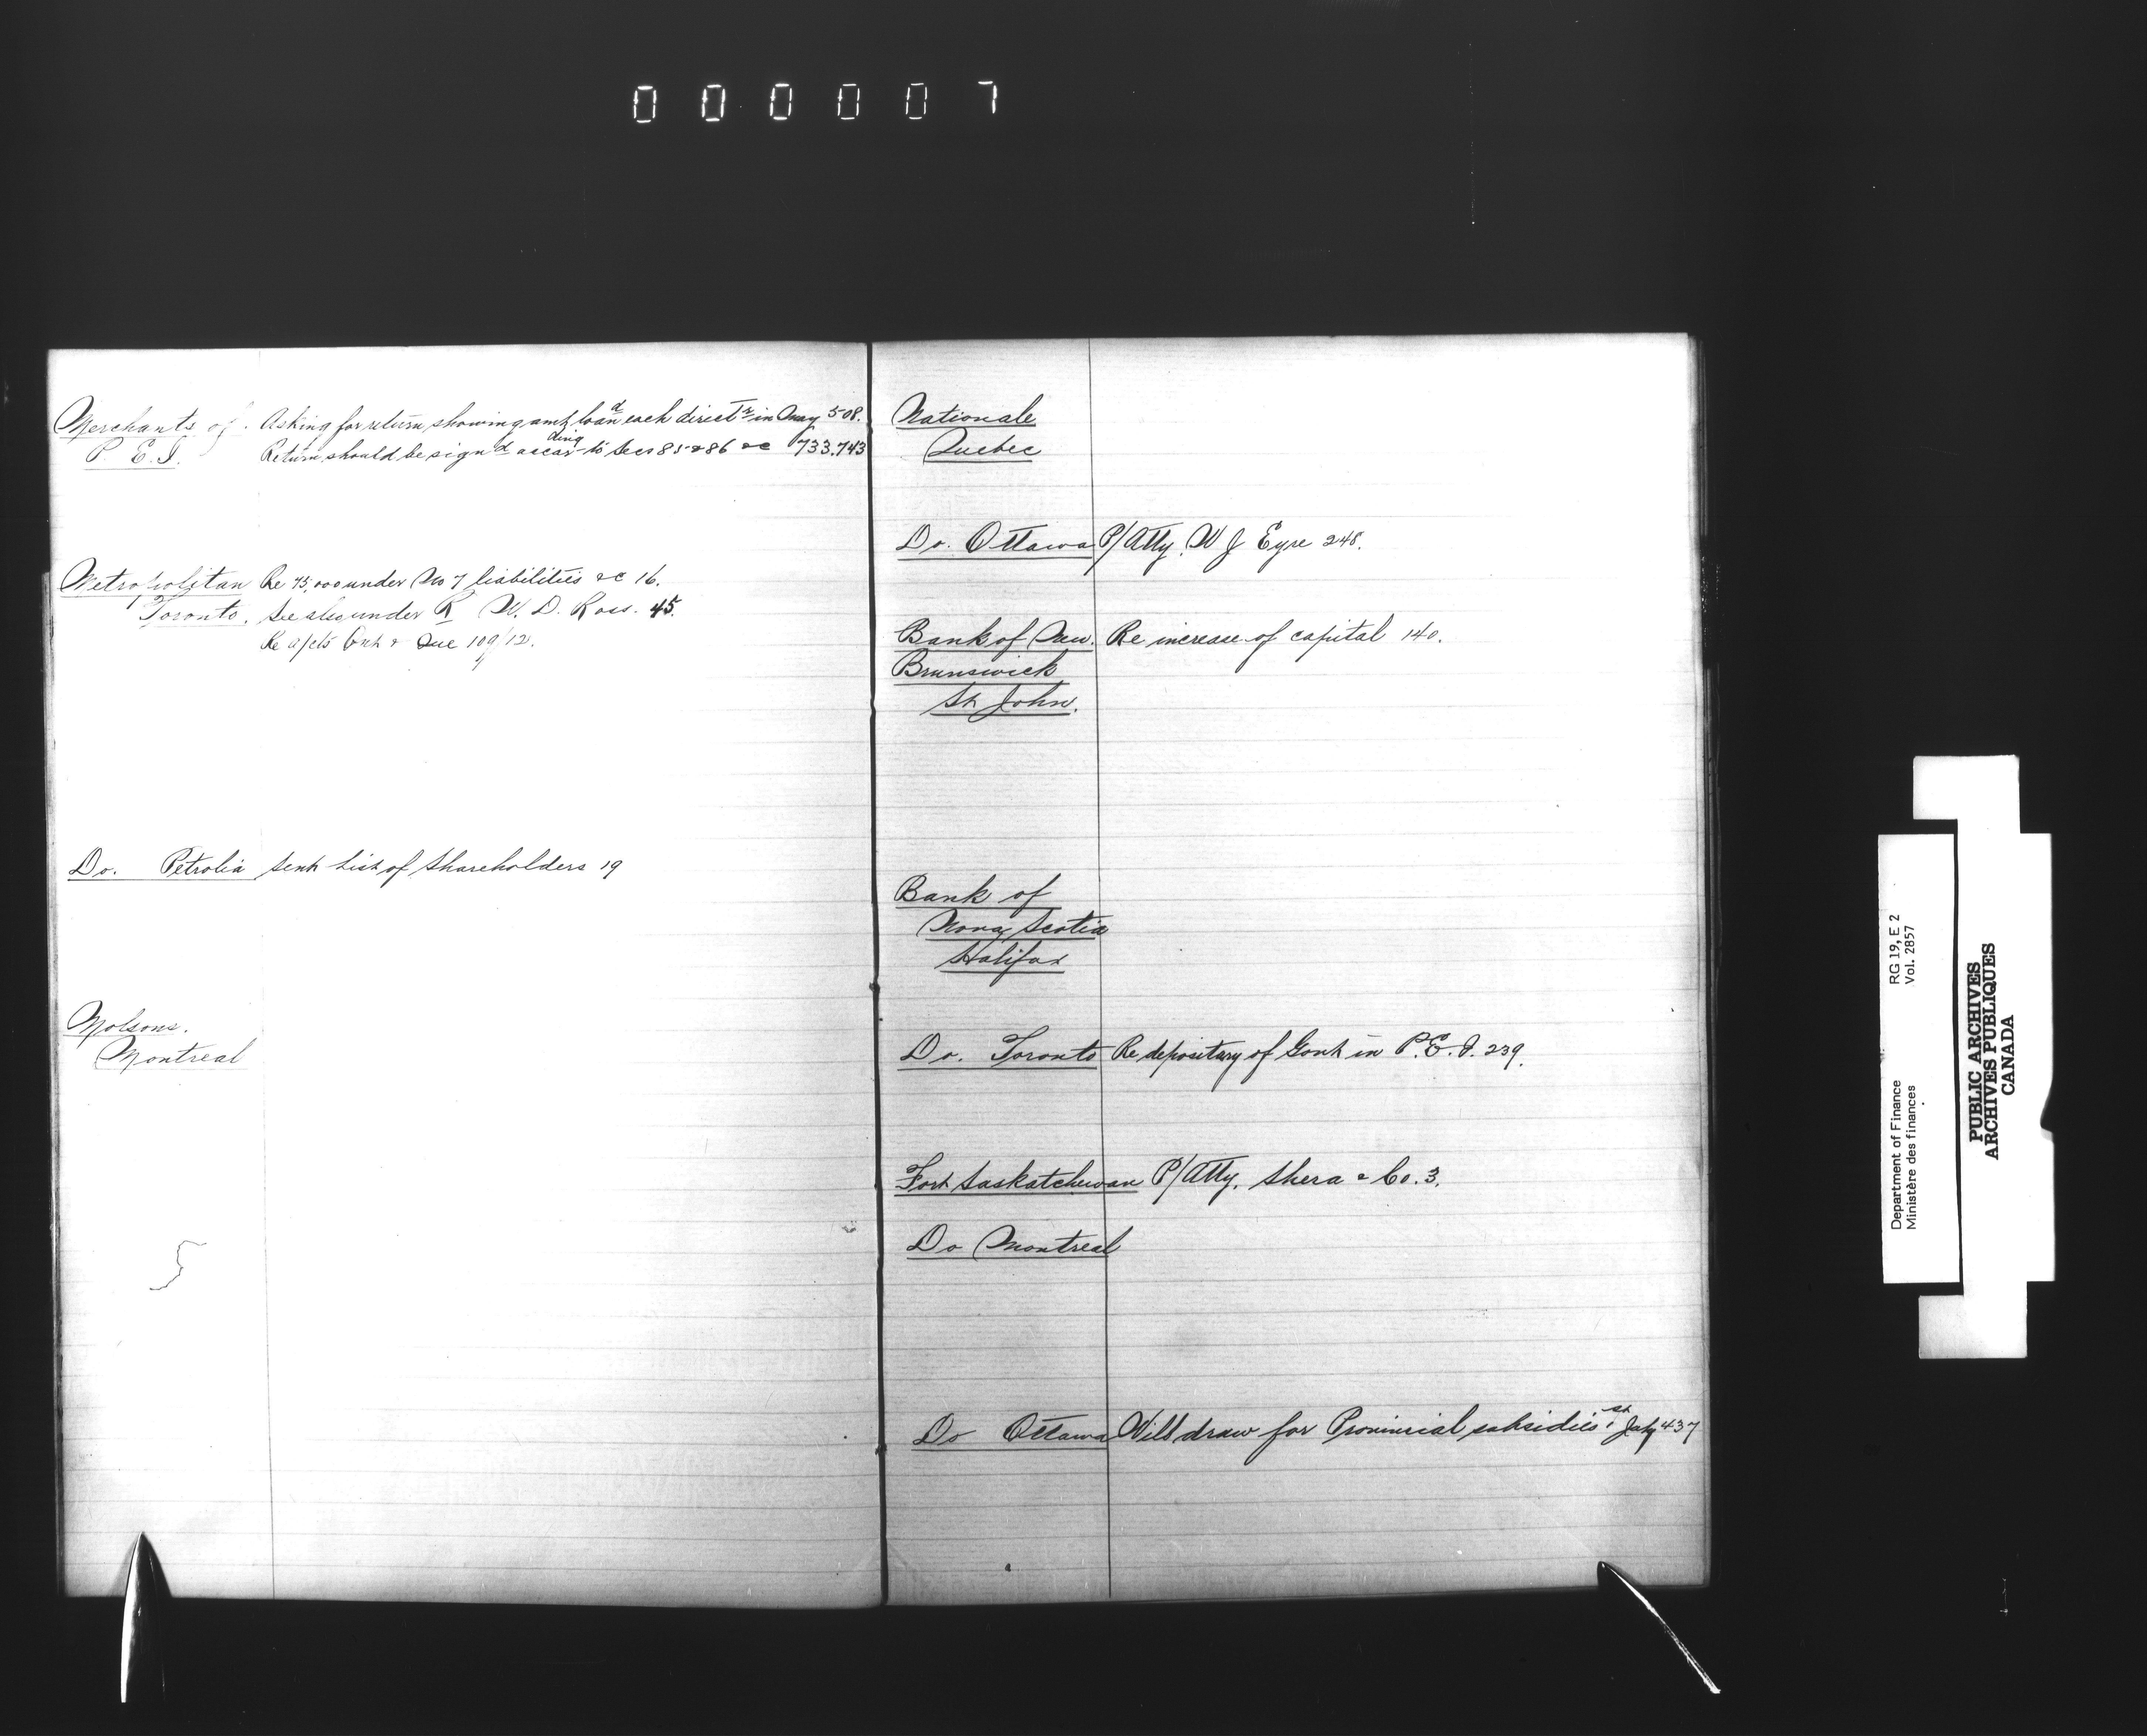 000007
Merchants of. Asking for return showing amt loan^d each direct^r in May 508.
P. E. I. Return should be sign^d accor^ding to Secs 85 & 86 &c 733.743
Metropolitan Re 75,000 under No 7 liabilities &c 16.
Toronto. See also under R W. D. Ross. 45.
Re a/cts Ont & Que 109/12.
Do. Petrolia Sent List of Shareholders 19
Molsons.
Montreal
Nationale
Quebec
Do. Ottawa P/Atty. W J Eyre 248.
Bank of New. Re increase of capital 140.
Brunswick
St John.
Bank of
Nova Scotia
Halifax
Do. Toronto Re depositary of Govt in P. E. I. 239.
Fort Saskatchewan P/Atty. Shera & Co. 3.
Do Montreal
Do Ottawa Will draw for Provincial subsidies 1^st July 437
RG 19, E 2
Vol. 2857
Department of Finance
Ministère des finances
PUBLIC ARCHIVES
ARCHIVES PUBLIQUES
CANADA